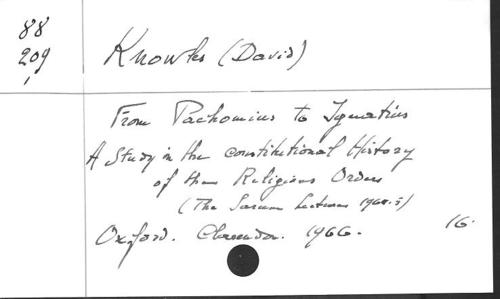 88
209
Knowles (David)
From Pachomius to Ignatius
A Study in the Constitutional History
of the Religious Orders
(The Sarum Lectures 1964-5)
Oxford. Clarendon. 1966.
16.